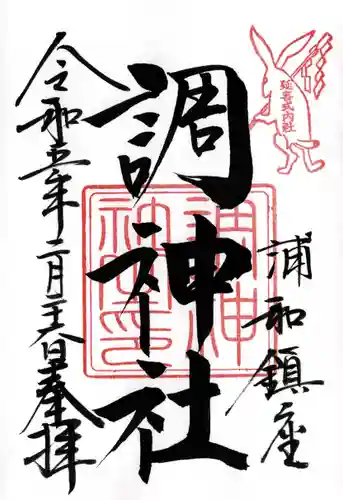 延喜式内社
浦和鎮座
調神社
令和五年二月二十六日奉拝